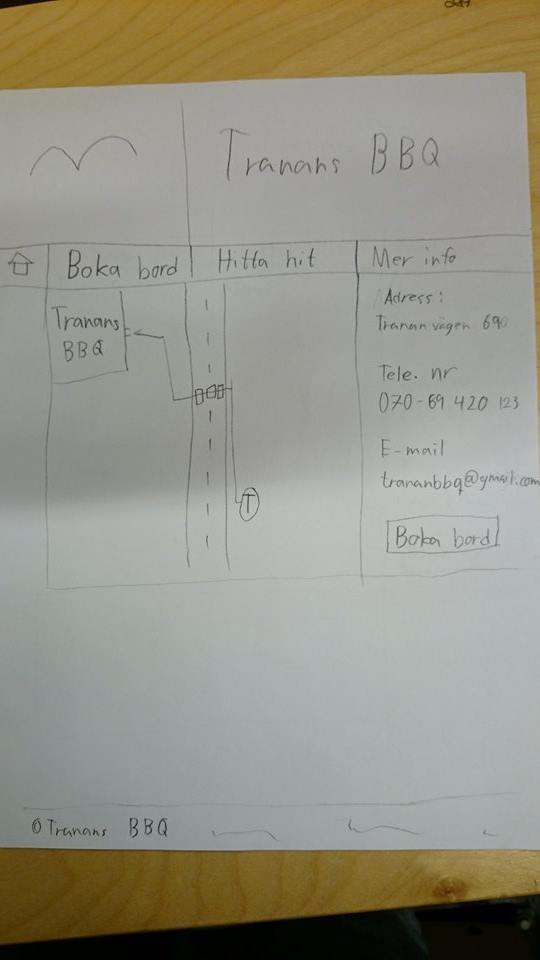 Tranans BBQ
Boka bord
Hitta hit
Mer info
Tranans
BBQ
T
Adress:
Tranan vägen 690
Tele. nr
070-69 420 123
E-mail
trananbbq@gmail.com
Boka bord
© Tranans BBQ